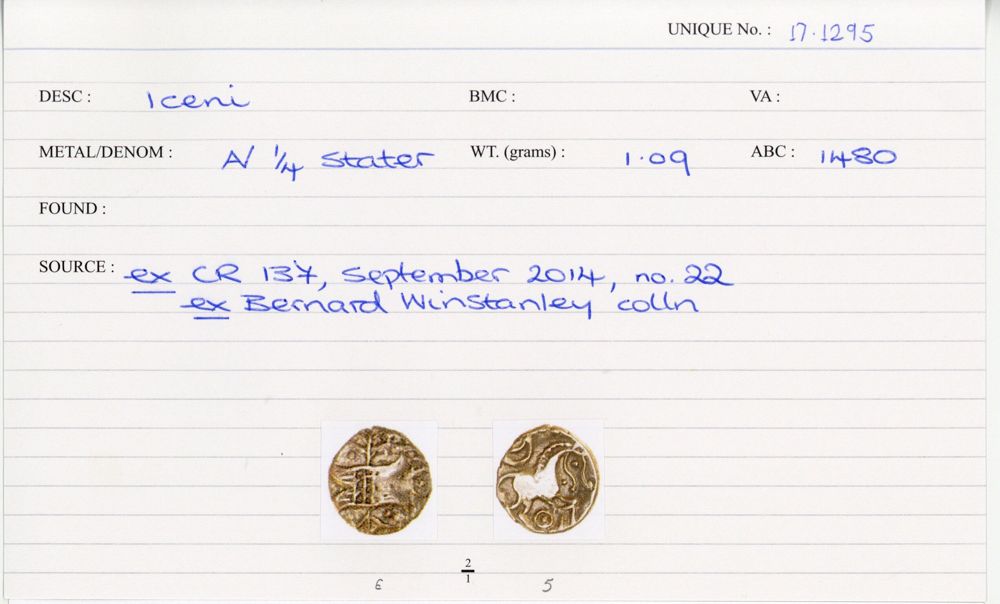 UNIQUE No. : 17.1295
DESC : Iceni BMC : VA :
METAL/DENOM : A/ 1/4 stater WT. (grams) : 1.09 ABC : 1480
FOUND :
SOURCE : ex CR 137, September 2014, no. 22
ex Bernard Winstanley colln
2/1
6 5